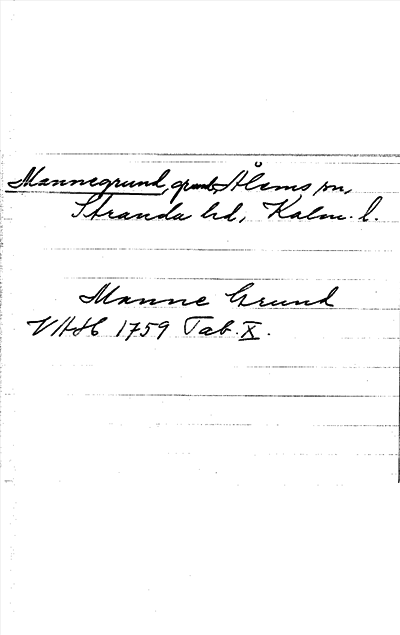 Mannegrund, grund, Ålems sn,
Stranda hd, Kalm. l.
Manne Grund
VAH 1759 Tab. X.